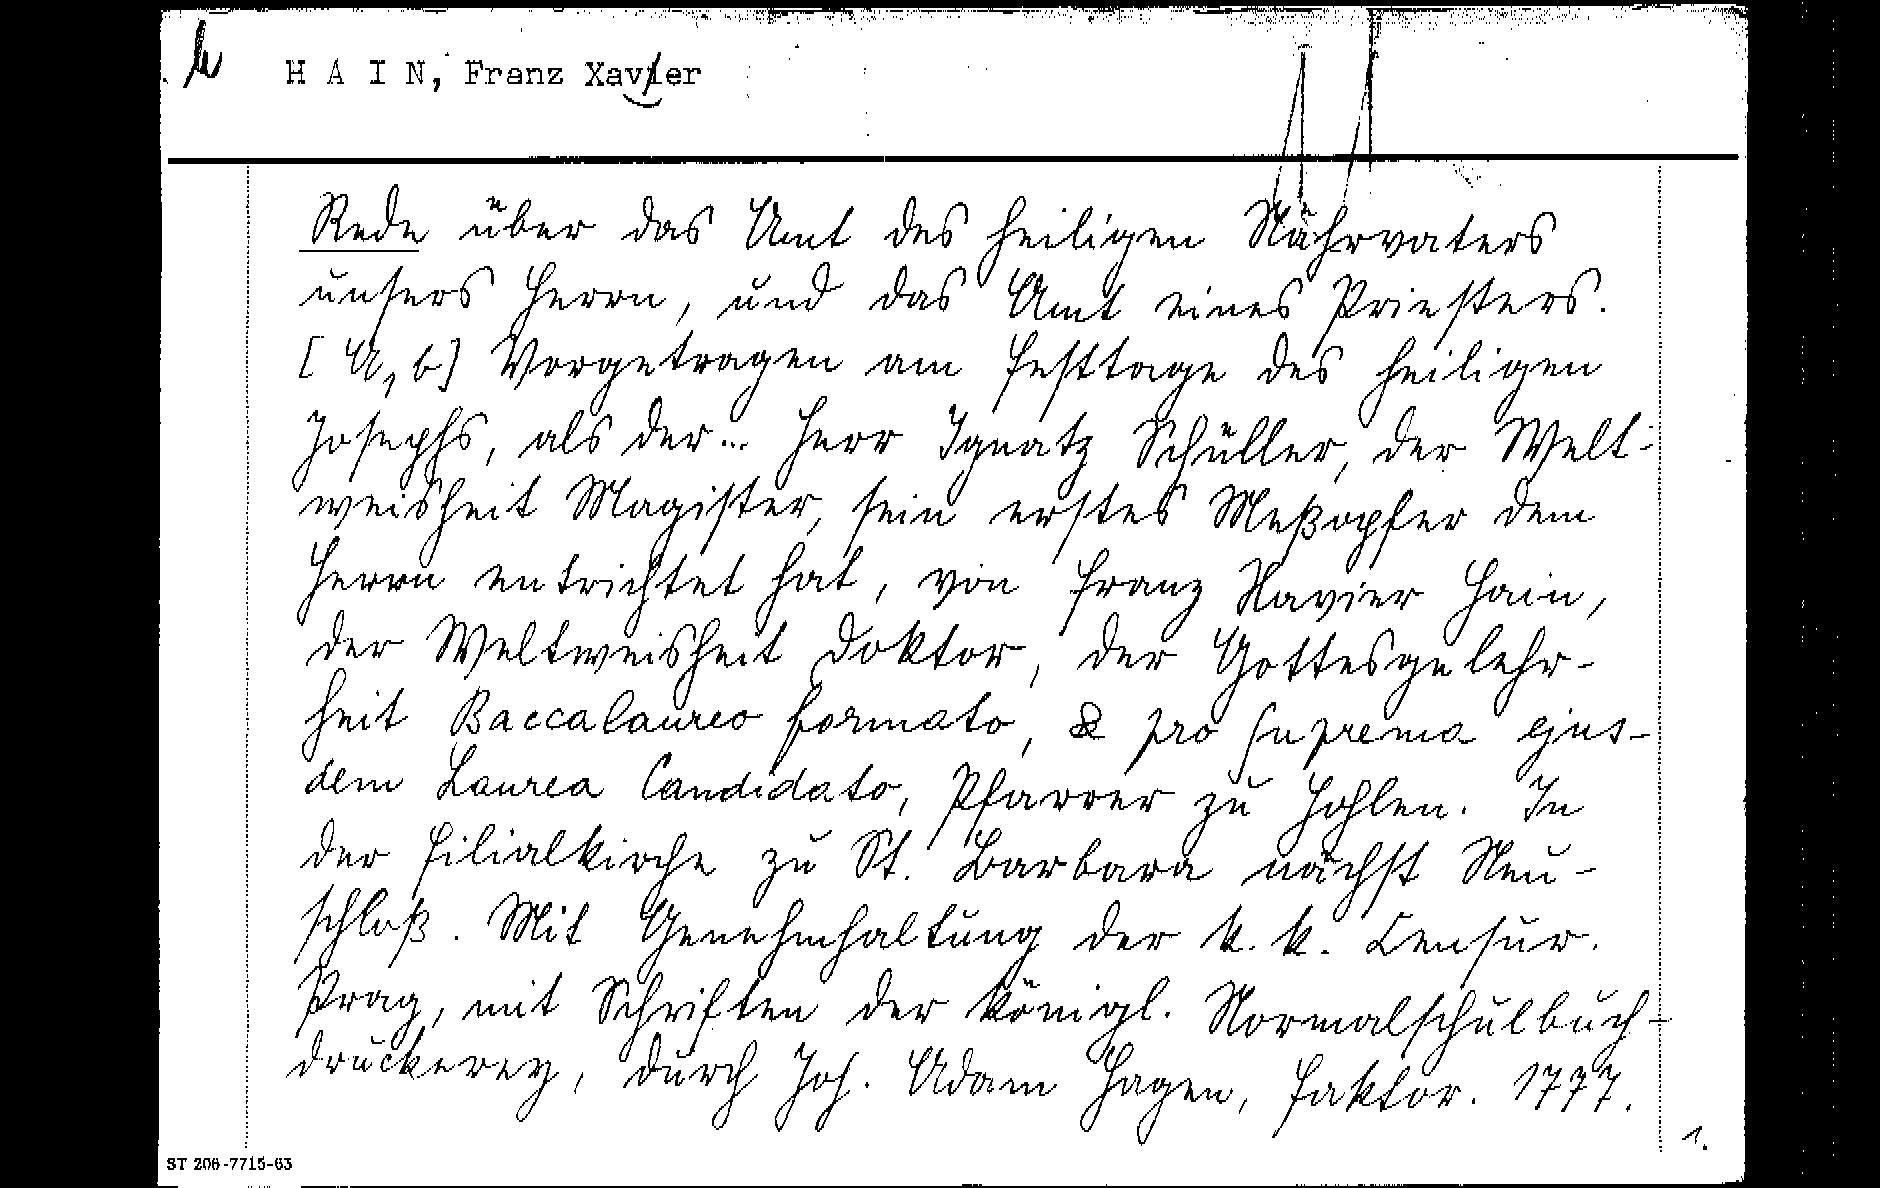 H A I N, Franz Xavier
Rede über das Amt des heiligen Nährvaters
unsers Herrn, und das Amt eines Priesters.
[A, b] Vorgetragen am Festtage des heiligen
Josephs, als der... Herr Ignatz Schüller, der Welt-
weisheit Magister, sein erstes Meßopfer dem
Herrn entrichtet hat, von Franz Xavier Hain,
der Weltweisheit Doktor, der Gottesgelehr-
heit Baccalaureo formato, & pro suprema ejus-
dem Laurea Candidato, Pfarrer zu Hohlen. In
der Filialkirche zu St. Barbara nächst Neu-
schloß. Mit Genehmhaltung der k. k. Censur.
Prag, mit Schriften der königl. Normalschulbuch-
druckerey, durch Joh. Adam Hagen, Faktor. 1777.
1.
ST 206-7715-63